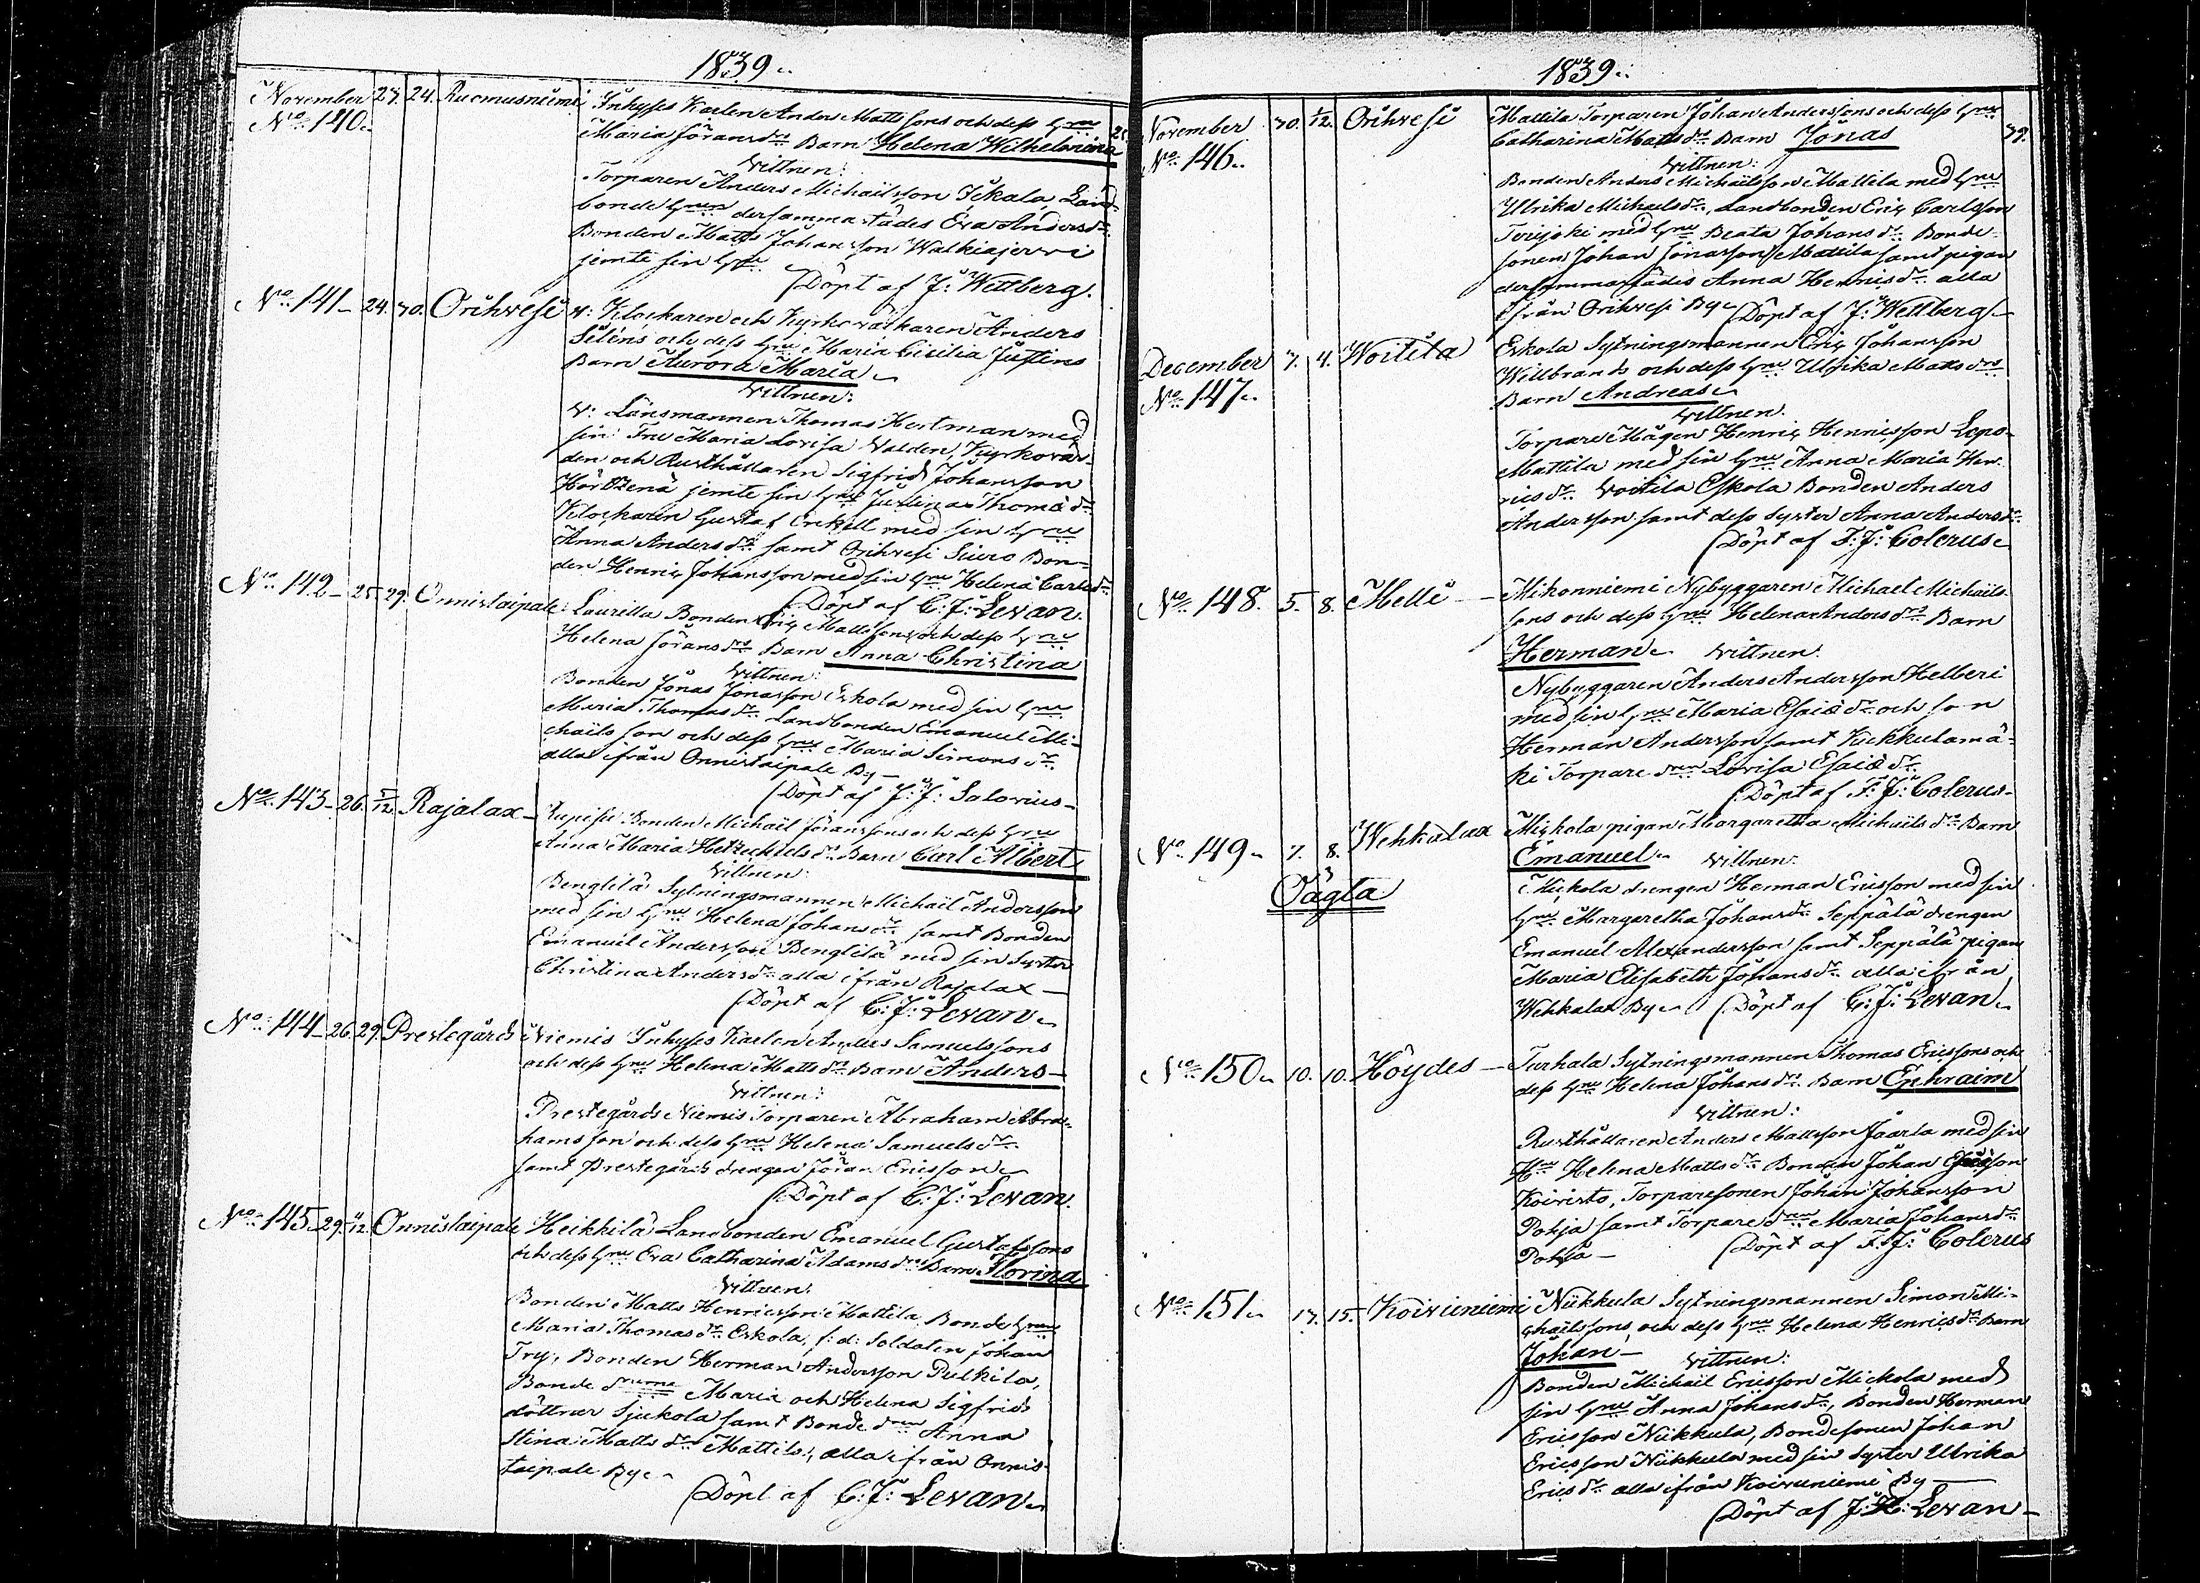 1839.
November 23. 24. Rucmusniemi Inhyses Karlen Anders Mattssons och dess hru
No 140. Maria Jöransdr Barn Helena Wilhelmina
Vittnen:
Torparen Anders Michailsson Iskala, Land-
bonde hrun dersammastädes Eva Andersdr
Bonden Matts Johansson Walkiajervi
jemte sin hru
Döpt af J. Wettberg.
No 141 24. 30. Orihvesi v. Klockaren och Kyrkoväktaren Anders
Siléns och dess hru Maria Cicilia Justins
Barn Aurora Maria
Vittnen:
v: Länsmannen Thomas Hertman med
sin Fru Maria Lovisa Walden, Kyrkovär-
den och Rusthållaren Sigfrid Johansson
jemte sin hru Justina Thomædr
Klockaren Gustaf Enkell med sin hru
Anna Andersdr samt Orihvesi Suero Bon-
den Henric Johansson med sin hru Helena Carlsdr
Döpt af C: J: Levan.
No 142 25 29. Onnistaipale Laurilla Bonden Eric Mattssons och dess hru
Helena Jöransdr Barn Anna Christina
Vittnen:
Bonden Jonas Jonasson Eskola med sin hru
Maria Thomasdr Landbonden Emanuel Mi-
chailsson och dess hru Maria Simonsdr
alla ifrån Onnistaipale By
Döpt af J: J: Salovius
No 143 26. 1/12 Rajalax Bonden Michail Jöranssons och dess hru
Anna Maria Hetzechielsdr Barn Carl Albert
Vittnen:
Benglilä Sytningsmannen Michail Andersson
med sin hru Helena Johansdr samt Bonden
Emanuel Andersson Benglilä med sin Syster
Christina Andersdr alla ifrån Rajalax
Döpt af C: J: Levan
No 144 26. 29. Prestegårds Niemis Inhyses Karlen Anders Samuelssons
och dess hru Helena Mattsdr Barn Anders
Vittnen:
Prestegårds Niemis Torparen Abraham Abra-
hamsson och dess hru Helena Samuelsdr
samt Prestegårds drengen Jöran Ericsson
Döpt af C: J: Levan.
No 145 29. 1/12. Onnistaipale Heikkilä Landbonden Emanuel Gustafssons
och dess hru Eva Catharina Adamsdr Barn Florina
Vittnen:
Bonden Matts Henricsson Mattila, Bonde hrun
Maria Thomasdr Eskola, f: d: Soldaten Johan
Try, Bonden Herman Andersson Pulkila,
Bonde drarne Maria och Helena Sigfrids
döttrar Sjukola samt Bonde dren Anna
Stina Mattsdr Mattila, alla ifrån Onnis-
taipale By
Döpt af C: J: Levan
1839.
November 30. 1/12. Orihvesi Mattila Torparen Johan Anderssons och dess hru
No 146. Catharina Mattsdr Barn Jonas 39.
Vittnen:
Bonden Anders Michailsson Mattila med hru
Ulrika Michailsdr, Landbonden Eric Carlsson
med hru Beata Johansdr Bonde-
sonen Johan Jonasson Mattila samt pigan
dersammastädes Anna Henricsdr alla
ifrån Orihvesi By Döpt af J: Wettberg
December 3. 4. Woitila Eskola Sytningsmannen Eric Johansson
No 147. Willbrands och dess hru Ulrika Mattsdrs
Barn Andreas
Vittnen.
Torpare Mågen Henric Henricsson Lepo-
Mattila med sin hru Anna Maria Hen-
ricsdr Voitila Eskola Bonden Anders
Andersson samt dess syster Anna Andersdr
Döpt af F: J: Colerus
No 148. 5. 8. Helli Mikonniemi Nybyggaren Michael Michails-
sons och dess hru Helena Andersdrs Barn
Herman Vittnen:
Nybyggaren Anders Andersson Helberi
med sin hru Maria Esaiædr och son
Herman Andersson samt Kukkulamä-
ki Torpare dren Lovisa Esaiædr
Döpt af F: J: Colerus
No 149 7. 8. Wehkalax Mickola pigan Margaretha Michailsdrs Barn
Oägta Emanuel Vittnen:
Mickola drengen Herman Ericsson med sin
hru Margaretha Johansdr Seppälä drengen
Emanuel Alexandersson samt Seppälä pigan
Maria Elisabeth Johansdr alla ifrån
Wehkalax By Döpt af C: J: Levan
No 150 10. 10. Höydes Turhala Sytningsmannen Thomas Ericssons och
dess hru Helena Johansdr Barn Ephraim
Vittnen:
Rusthållaren Anders Mattsson Jaarla med sin
Hru Helena Mattsdr Bonden Johan Ericsson
Koivisto, Torparesonen Johan Johansson
Pohja samt Torpare dren Maria Johansdr
Pohja Döpt af F: J: Colerus
No 151 13. 15. Koivuniemi Nikkula Sytningsmannen Simon Mi-
chailssons och dess hru Helena Henricsdr Barn
Johan Vittnen:
Bonden Michail Ericsson Mickola med
sin hru Anna Johansdr, Bonden Herman
Ericsson Nikkula, Bondesonen Johan
Ericsson Nikkula med sin Syster Ulrika
Ericsdr alla ifrån Koivuniemi By
Döpt af J: H: Levan